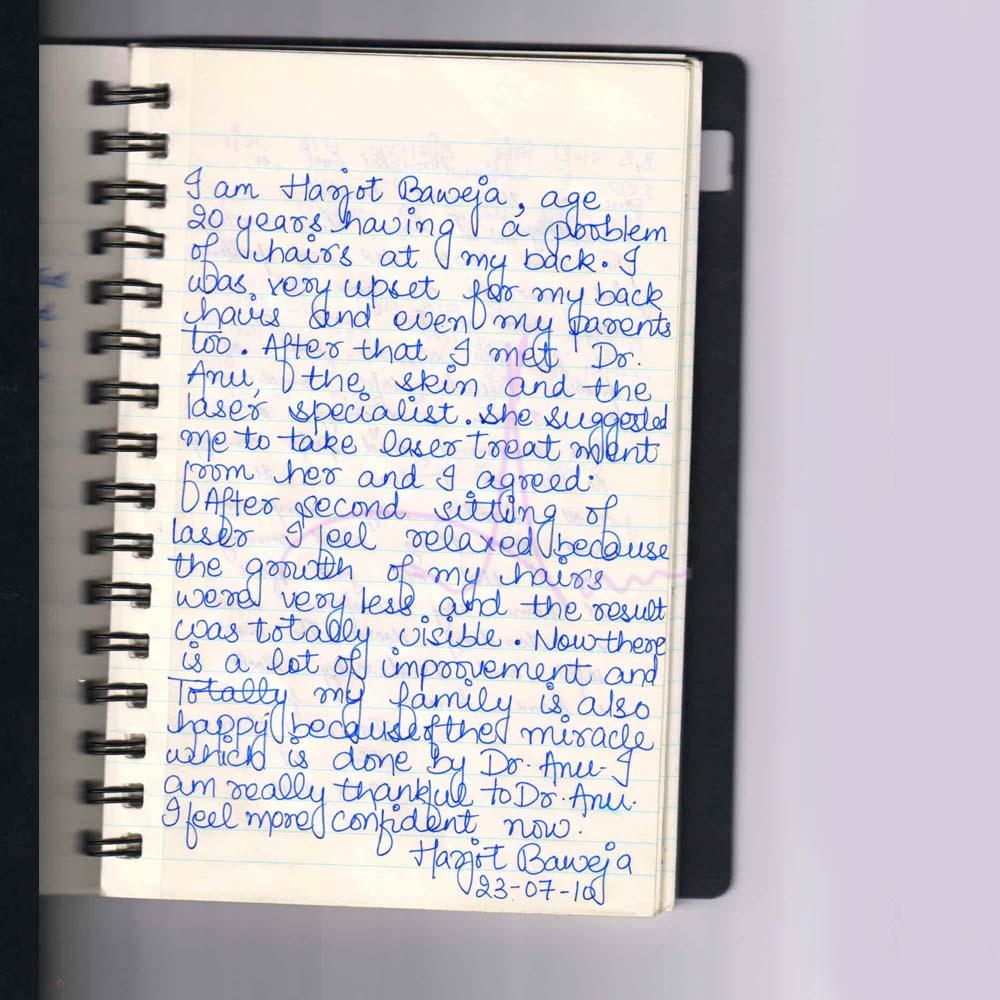 I am Harjot Baweja, age
20 years having a problem
of hairs at my back. I
was very upset for my back
hairs and even my parents
too. After that I met Dr.
Anu, the skin and the
laser specialist. she suggested
me to take laser treat ment
from her and I agreed.
After second sitting of
laser I feel relaxed because
the growth of my hairs
were very less and the result
was totally visible. Now there
is a lot of improovement and
Totally my family is also
happy because of the miracle
which is done by Dr. Anu. I
am really thankful to Dr. Anu.
I feel more confident now.
Harjot Baweja
23-07-10